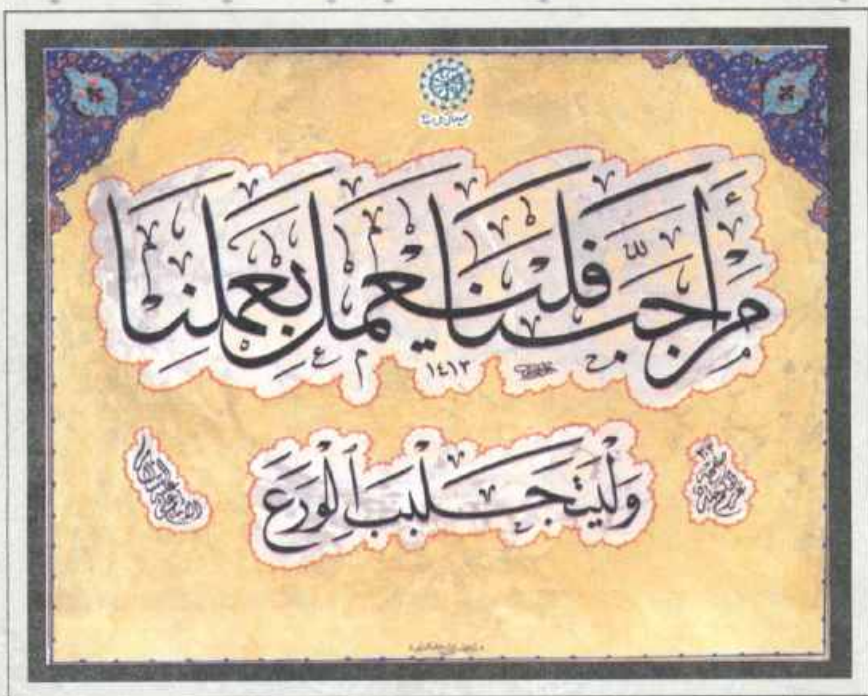 مَنْ أَحَبَّنَا فَلْيَعْمَلْ بِعَمَلِنَا
١٤١٣
وَلْيَتَجَلْبَبِ الْوَرَعَ